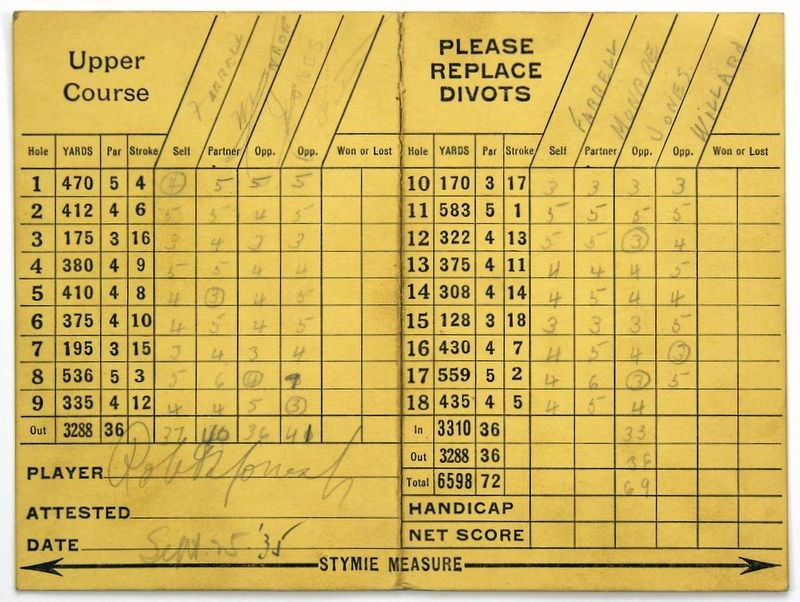 Upper Course
FARRELL MONROE JONES
Hole YARDS Par Stroke Self Partner Opp. Opp. Won or Lost
1 470 5 4 4 5 5 5
2 412 4 6 5 5 4 5
3 175 3 16 3 4 3 3
4 380 4 9 5 5 4 4
5 410 4 8 4 3 4 5
6 375 4 10 4 5 4 5
7 195 3 15 3 4 3 4
8 536 5 3 5 6 4
9 335 4 12 4 4 5 3
Out 3288 36 37 40 36 41
PLAYER
ATTESTED
DATE Sept. 25 '35
PLEASE
REPLACE
DIVOTS
FARRELL MONROE JONES WILLARD
Hole YARDS Par Stroke Self Partner Opp. Opp. Won or Lost
10 170 3 17 3 3 3 3
11 583 5 1 5 5 5 5
12 322 4 13 5 5 3 4
13 375 4 11 4 4 4 5
14 308 4 14 4 5 4 4
15 128 3 18 3 3 3 5
16 430 4 7 4 5 4 3
17 559 5 2 4 6 3 5
18 435 4 5 4 5 4
In 3310 36 33
Out 3288 36 36
Total 6598 72 69
HANDICAP
NET SCORE
STYMIE MEASURE